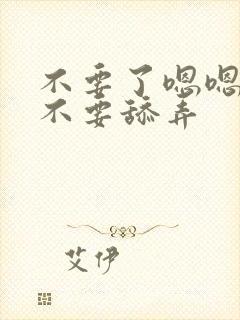 不要了嗯嗯
不要舔弄
艾伊